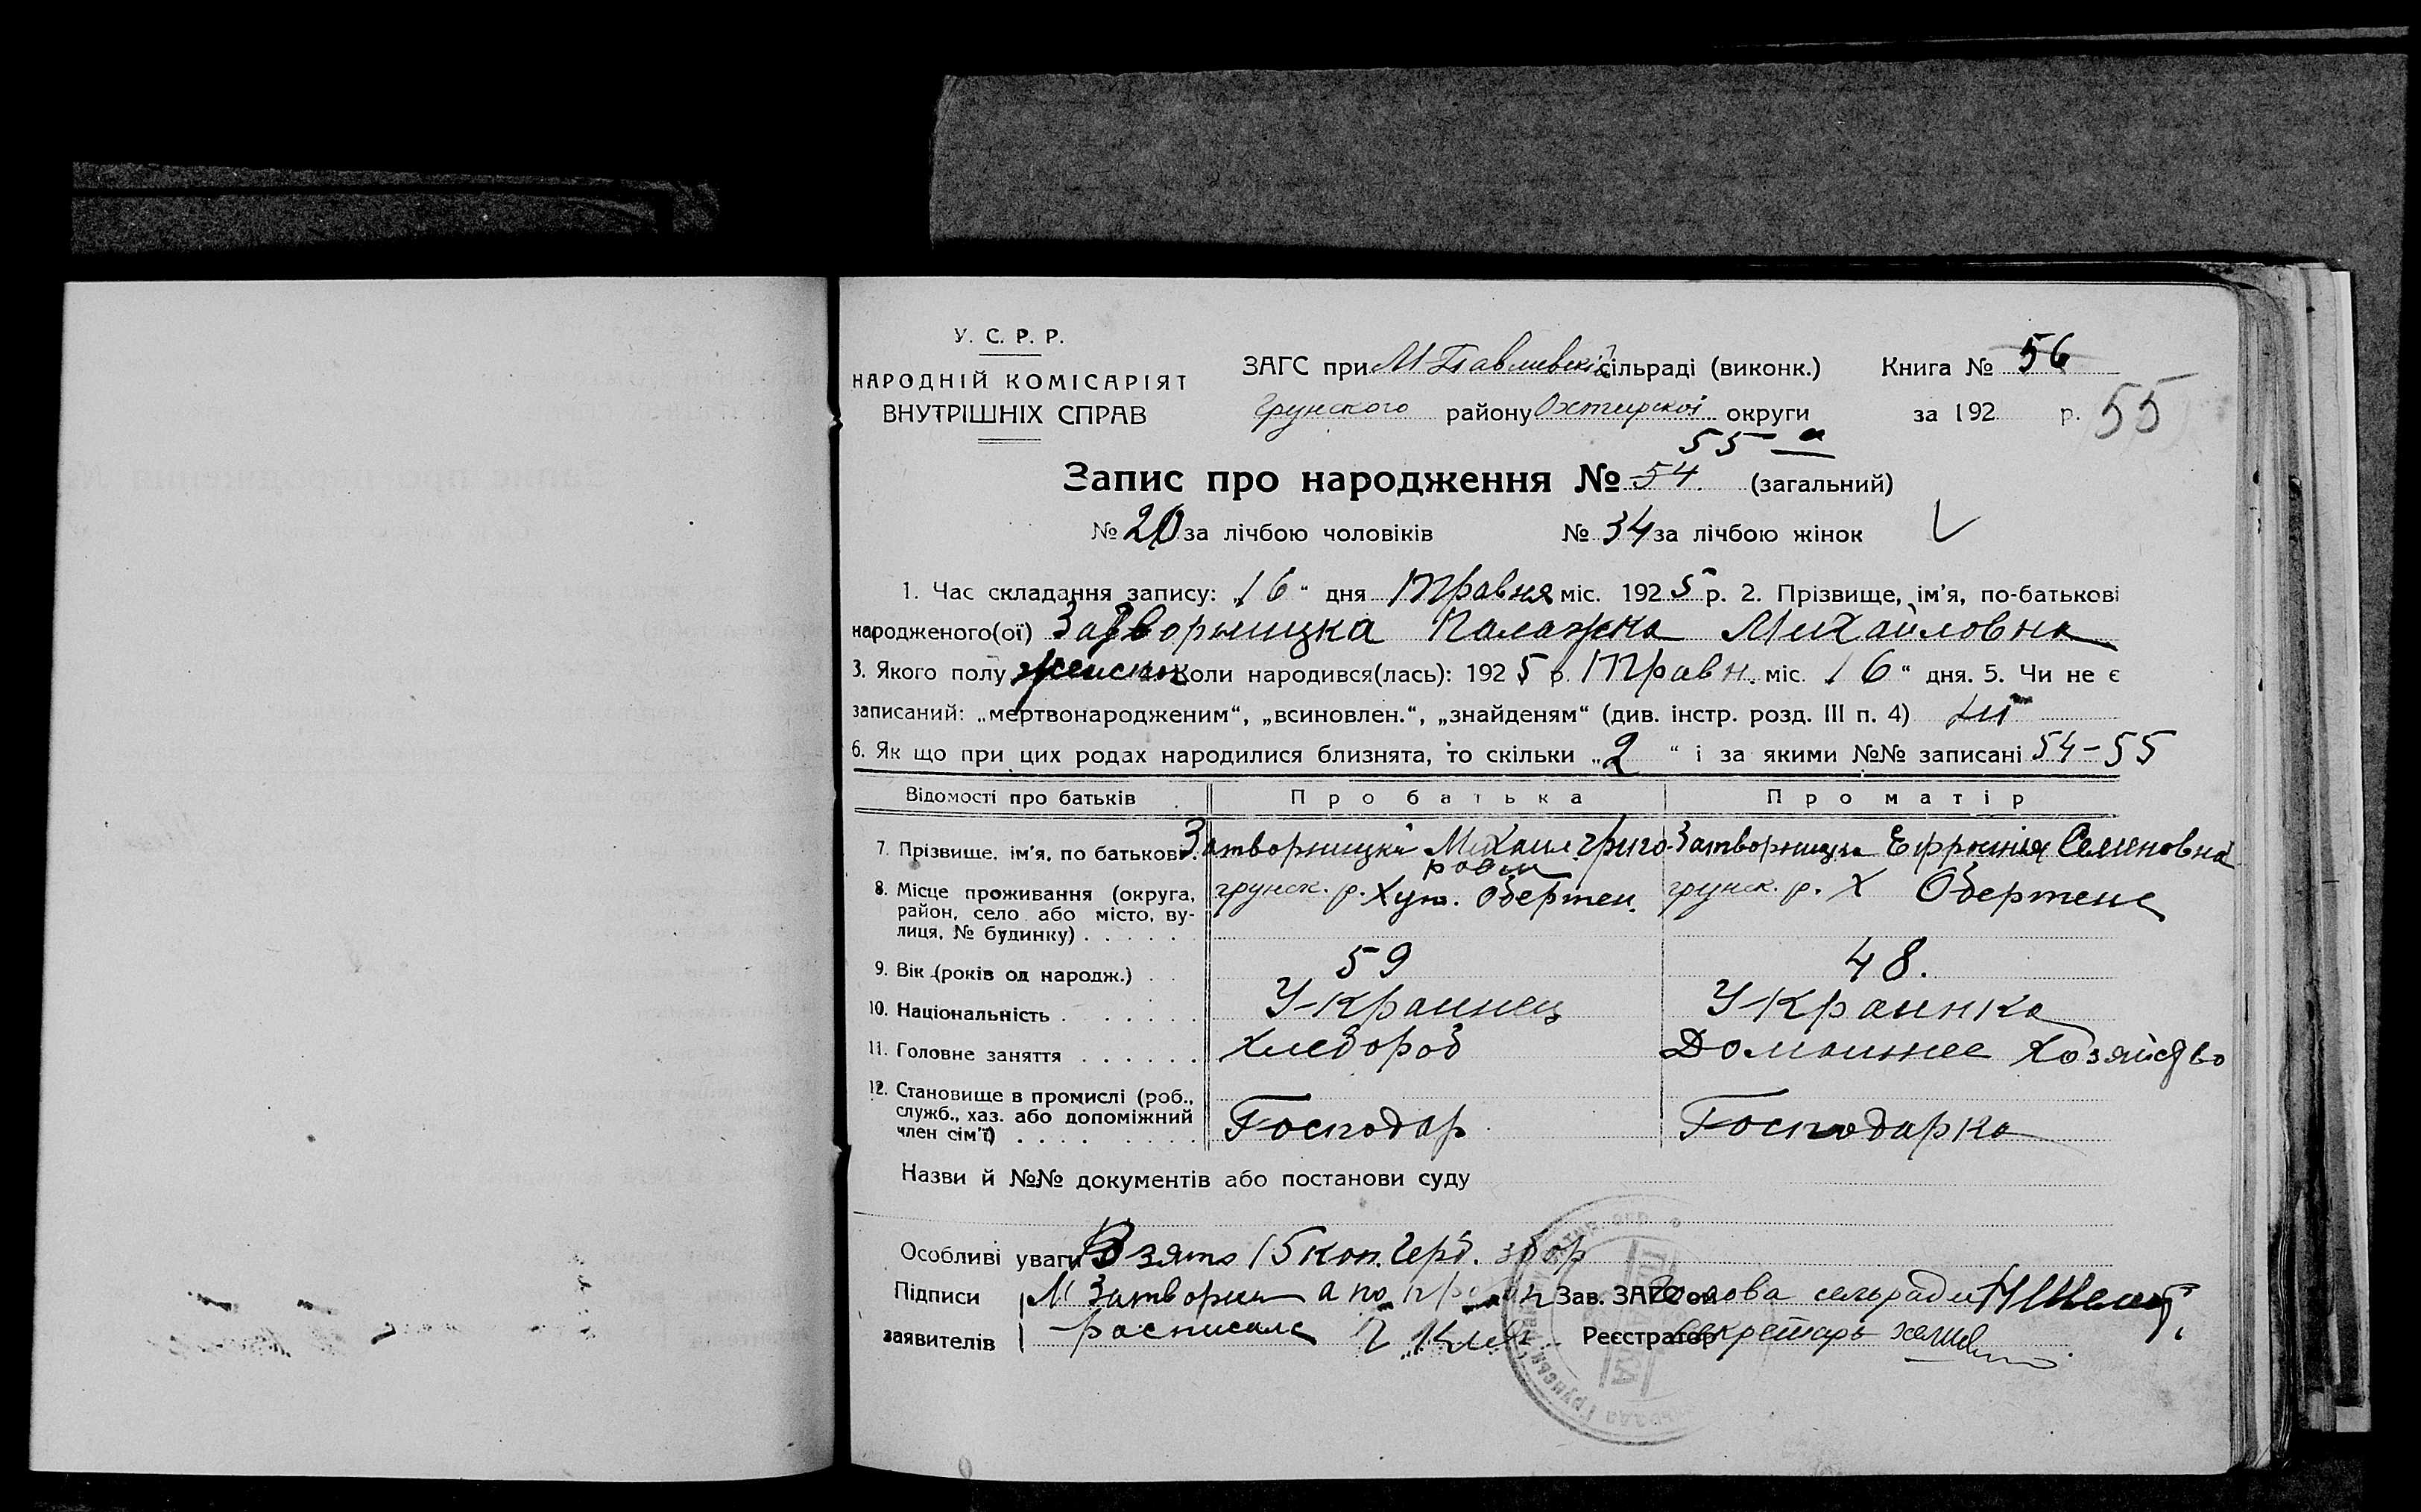 У. С. Р. Р.
НАРОДНІЙ КОМІСАРІЯТ
ВНУТРІШНІХ СПРАВ
ЗАГС при М-Павливскій сільраді (виконк.) Книга № 56
Грунского району Охтирскоі округи за 192 р. 55
55-а
Запис про народження № 54 (загальний)
№ 20 за лічбою чоловіків № 34 за лічбою жінок
1. Час складання запису: „16“ дня Травня міс. 1925 р. 2. Прізвище, ім'я, по-батькові
народженого(ої) Затворницка Палажка Михайловна
3. Якого полу женск Коли народився(лась): 1925 р. Травн. міс. 16“ дня. 5. Чи не є
записаний: „мертвонародженим“, „всиновлен.“, „знайденям“ (див. інстр. розд. III п. 4)
6. Як що при цих родах народилися близнята, то скільки „2“ і за якими №№ записані 54-55
Відомості про батьків Про батька Про матір
7. Прізвище, ім'я, по батькові. Затворницкий Михаил Григо- Затворницка Ефросинія Семеновна
рович
8. Місце проживання (округа, грунск. р. Хут. Обертен. грунск. р. Х Обертене
район, село або місто, ву-
лиця, № будинку)
9. Вік (років од народж.) 59 48.
10. Національність Украинец Украинка
11. Головне заняття Хлебороб Домашнее Хозяйство
12. Становище в промислі (роб.,
служб., хаз. або допоміжний
член сім'ї) Господар Господарка
Назви й №№ документів або постанови суду
Особливі уваги Взято 15 коп. Герб. збор
Підписи М Затворни а по Зав. ЗАГС'ом Голова сельради
заявителів росписалс Реєстратор Секретарь